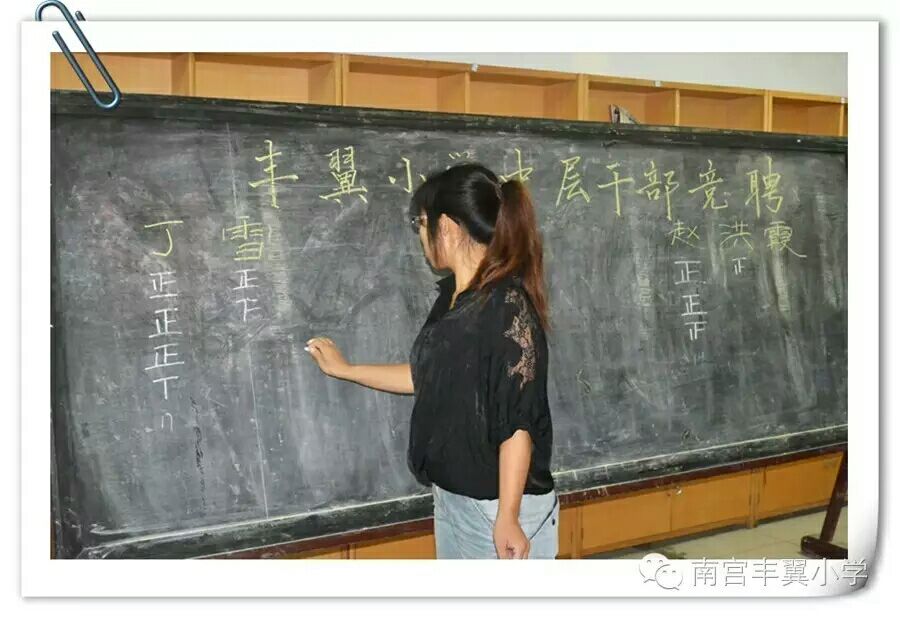 丰翼小学中层干部竞聘
丁雪 赵洪霞
正 正 正 正
正 正
正 正
南宫丰翼小学